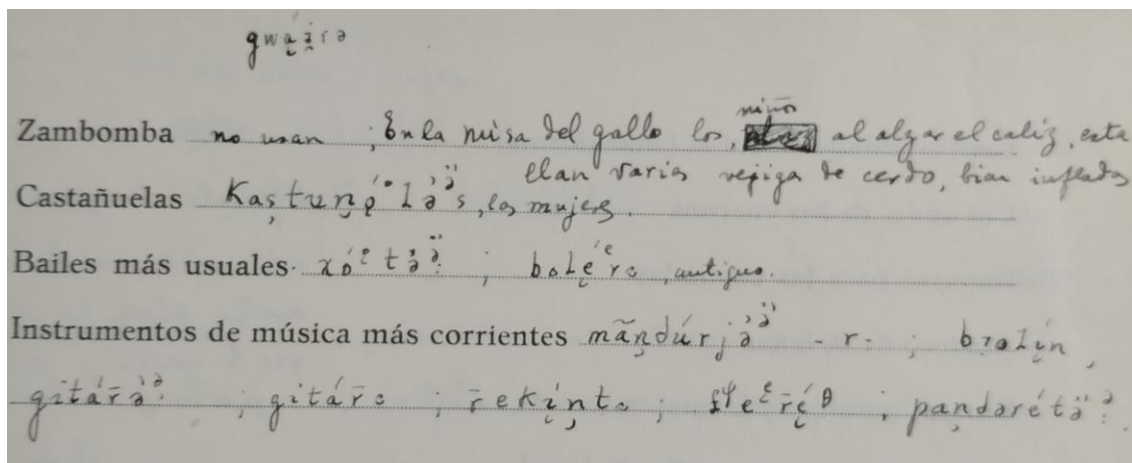 gwáịrə
Zambomba no usan ; En la misa del gallo los niños al alzar el caliz, esta
llan varias vejiga de cerdo, bien infladas
Castañuelas kastuŋo̜´lə̀s, las mujeres.
Bailes más usuales· xóᵉtə̀ ; boleᵉ́ro, antiguo.
Instrumentos de música más corrientes mãndúrjə̀ - r - ; bɪolín,
gitár̄ə̀ ; gitár̄o ; r̄ekínto ; r̄éθ ; pandaréta